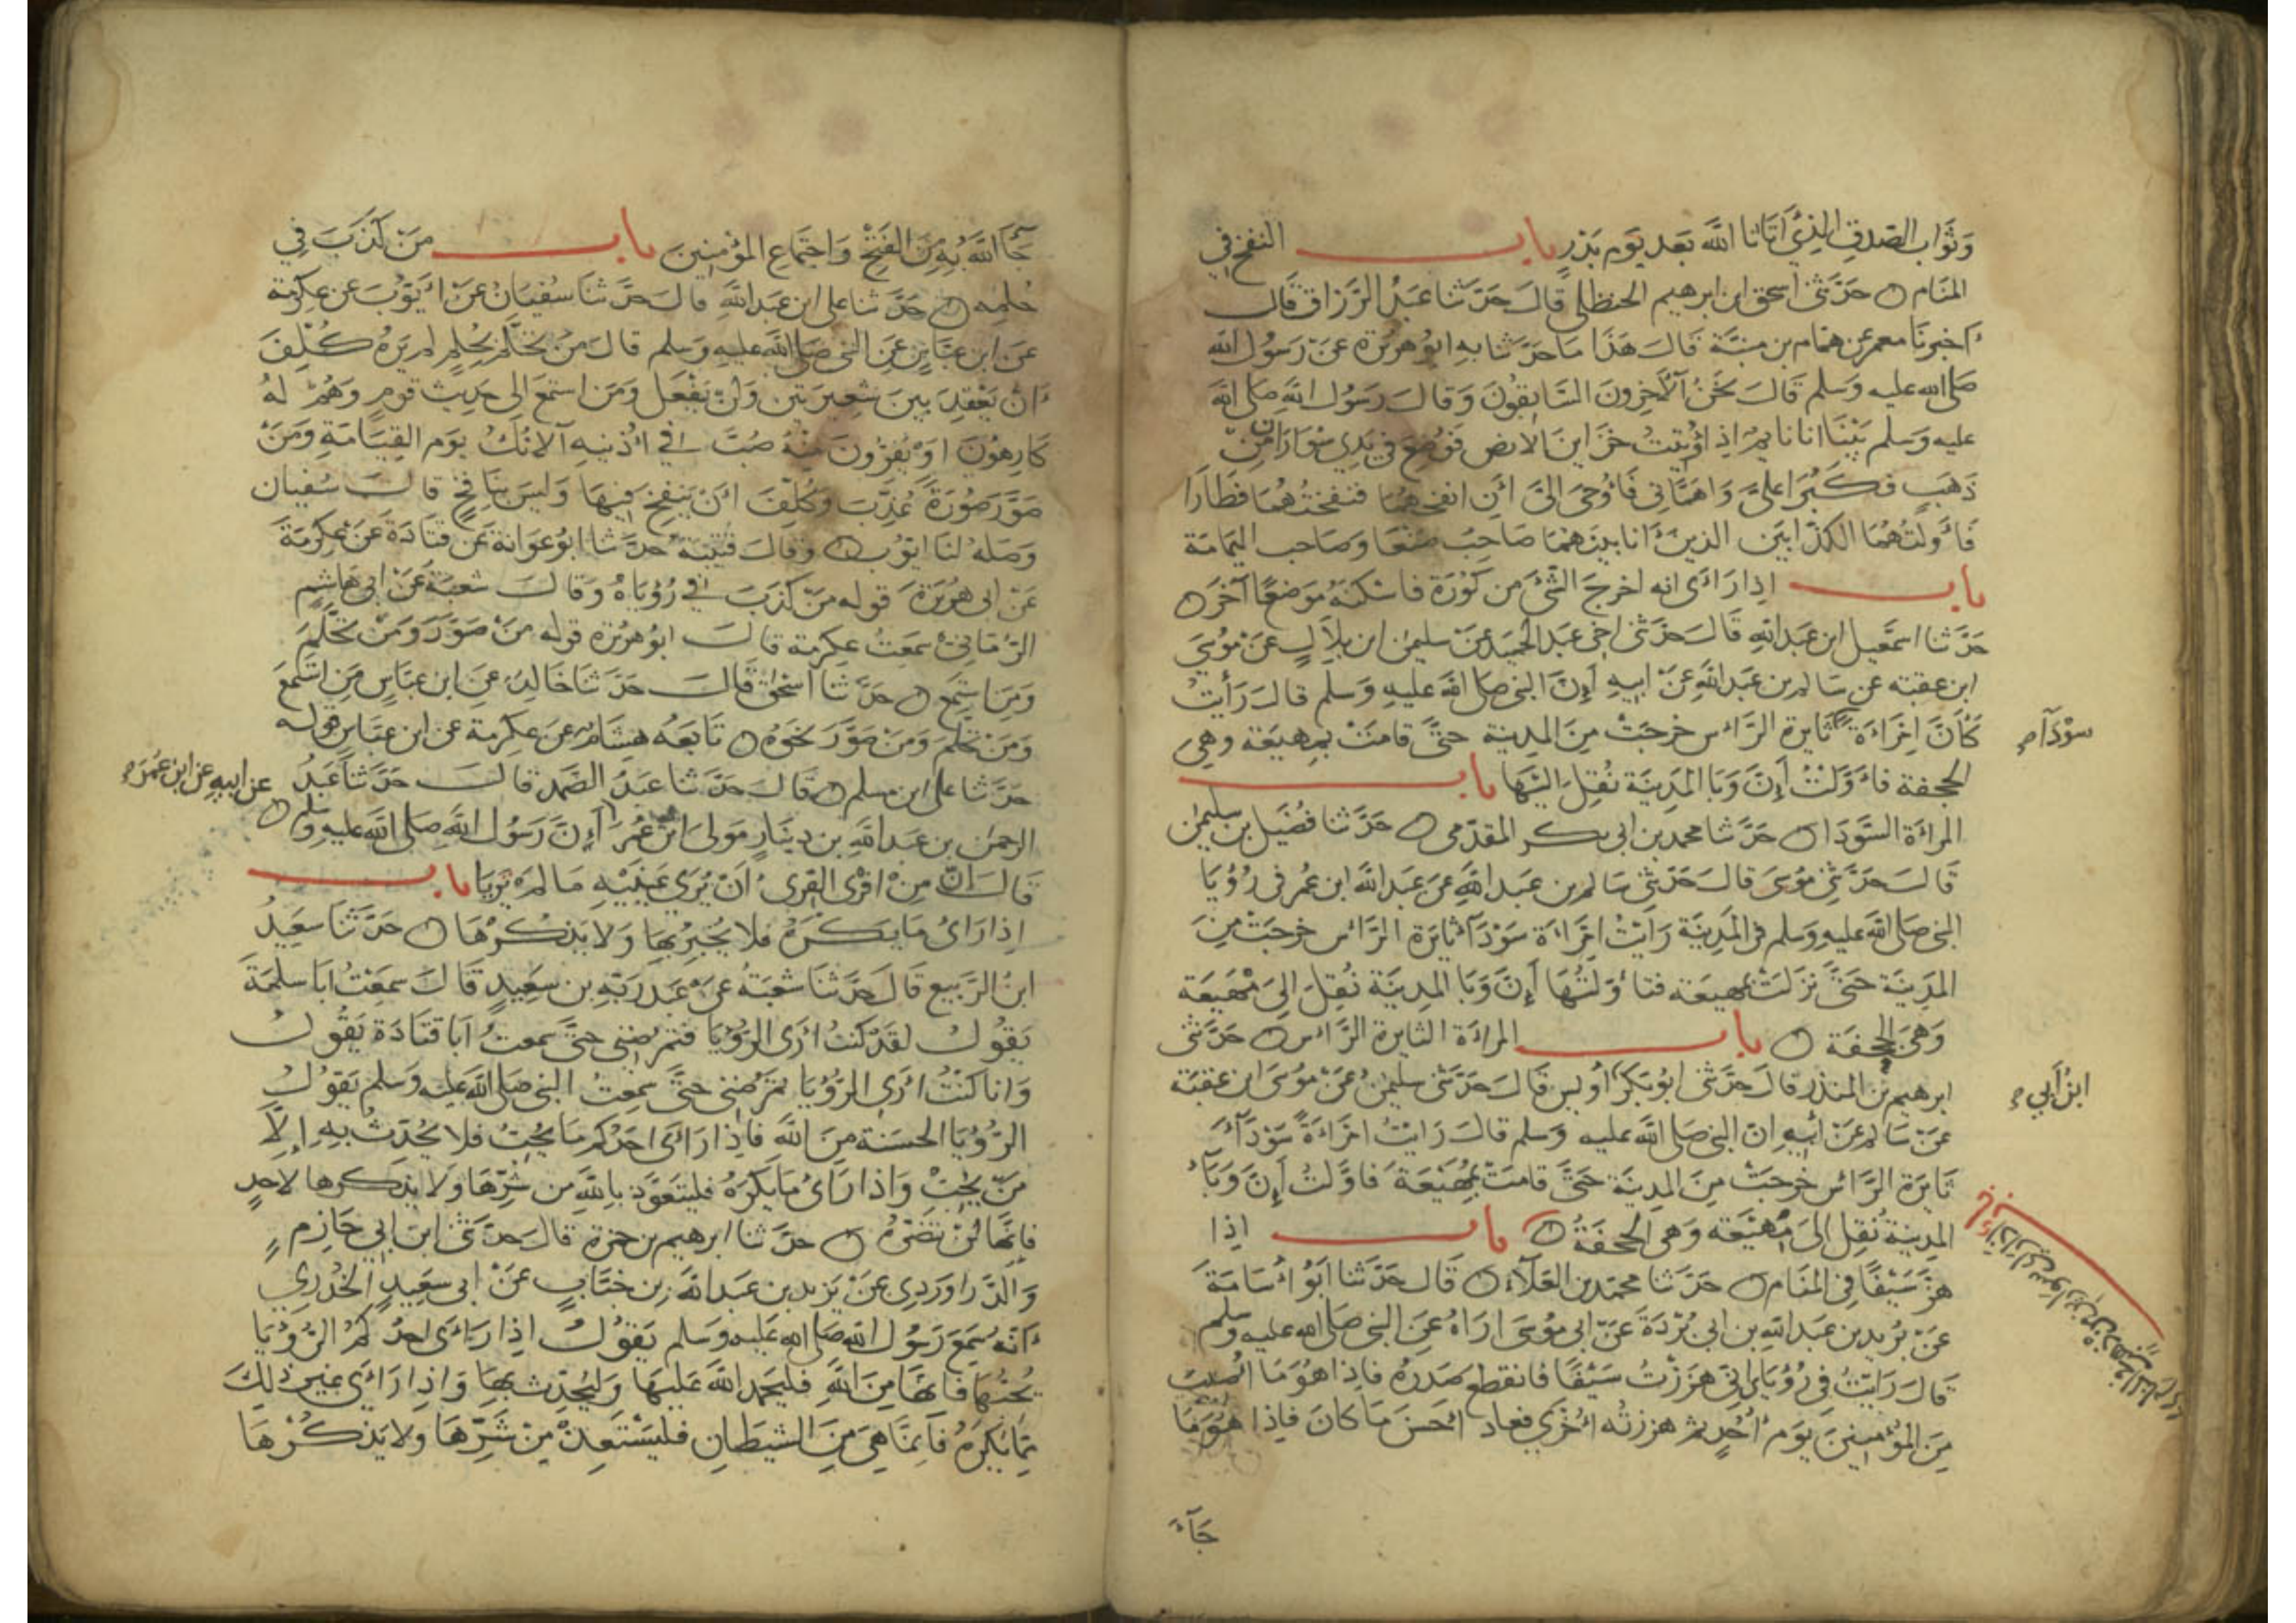 وَثَوَاب الصّدق الذِي أَتَانَا اللَّه بَعد يَوم بَدْرٍ باب النفخ في
المنَام حَدّثنى اسحق ابن ابرهيم الحنظلى قالَ حَدّثنا عَبدُ الرّزاق قال
اخبرنا معمر عن همّام بن منبّة قالَ هَذا مَا حَدّثنا به ابو هريرة عَن رَسُول الله
صَلى الله عليه وَسلم قَالَ نَحْنُ الآخِرونَ السّابقونَ وَقالَ رَسُول الله صَلى الله
عليه وسلم بَيْنَا انا نايمٌ اذ اؤتيتُ خزاين الارض فَوُضِعَ في يَدِي سُوَارَان مِن
ذَهَبٍ فكَبُرَا علىَّ وَاهمّانى فَاُوْحىَ الىَّ أن انفخهُما فنفختُهُما فَطَارَا
فَاوّلتُهُمَا الكذّابَيْن الذين أنا بينهمَا صَاحبُ صَنْعَا وصَاحب اليَمَامَة
باب اذا رَاَى انه اخرجَ الشّىَ من كُوْرَة فاسْكنهُ مَوضعًا آخَرَ
حَدّثنا اسمعيل ابن عَبد اللهِ قَالَ حَدّثنى اخى عَبد الحميد عَن سليمن ابن بلالٍ عَنْ مُوسَى
ابن عقبة عن سَالم بن عَبد اللّهِ عَنْ ابيهِ اَنَّ النبي صَلى الله عليهِ وَسلم قالَ رَأيتُ
كَأنَّ امْرَاَة ثايرة الرّاس خرجَتْ مِنَ المدِينة حتّى قامَتْ بِمهيَعَة وهي
سوْدَآء
الجحفة فاَوّلتُ أنّ وَبَا المَدِينَة نُقِلَ اليْهَا باب
المرْاَة السَّوْدَا حَدّثنا محمد بن ابى بكر المقدّمى حَدّثنا فضَيل بن سليمن
قالَ حَدّثنِى مُوسَى قالَ حَدّثنِى سَالم بن عَبد اللهِ عَن عَبد اللهِ ابن عمر فى رُؤيَا
النبى صَلى الله عليهِ وَسلم فى المَدِينَة رَايْتُ امْرَاَة سَوْدَآ ثايرَة الرَّاْس خرجَتْ مِنَ
المَدِينَة حَتّى نَزلَتْ بمهيعَة فتاَوّلتُهَا أنّ وَبَا المدِينَة نُقِلَ الىَ مَهْيَعَة
وَهىَ الجحفَة باب المرْاَة الثايرة الرَّاْس حَدّثنى
ابرهيم بن المنذر قالَ حَدّثنى ابو بَكر اُويس قَالَ حَدّثنى سليمنُ عَنْ مُوسَى ابن عقبَة
ابنُ أبي
عَن سَالم عَنْ أبيهِ ان النبى صَلى الله عليه وَسلم قالَ رَايْتُ امْرَاَةً سَوْدَآءَ
ثَايرَة الرَّاْس خرجَتْ مِنَ المدينَة حَتَّى قامَتْ بمَهْيَعَة فاوَّلتُ أنّ وَبَآء
المدِينَة نُقِل الىَ مَهْيَعَة وَهى الجحفَةُ باب اذا
هزّ سَيْفًا فى المنَام حَدّثنا محمّد بن العَلاَء قَال حَدّثنا ابُو اُسَامَة
عَنْ بُرَيد بن عَبد اللهِ بن ابى بُرْدَة عَنْ ابى مُوسَى اراهُ عَنِ النبى صَلى الله عليه وسلم
قالَ رَايْتُ فى رُؤيَاى انّى هَزَزْتُ سَيْفًا فانقطع صَدرُهُ فاذا هُوَ مَا اُصيبَ
مِنَ المؤمنينَ يَوم اُحُدٍ ثم هززتُه اُخْرَى فعاد احْسَنَ مَا كانَ فاذا هُوَ مَا
جَآءَ
جَآ اللّهُ بهِ مِنَ الفَتْح وَاجتماع المؤمنِينَ باب مَن كَذَبَ فِي
حُلمِه حَدّثنا على ابن عَبد اللهِ قالَ حَدّثنا سُفيَانُ عَنْ ايّوبَ عَن عكرمَة
عَن ابن عبّاسٍ عَنِ النبى صَلى الله عليه وَسلم قالَ مَنْ تحَلَّمَ بحُلمٍ لم يَرَهُ كُلِّفَ
اَنْ يَعْقِدَ بينَ شَعِيرَتَين وَلَن يَفْعَل وَمَن استَمَعَ الى حَدِيث قومٍ وَهُمْ لهُ
كَارِهُوْنَ اَوْ يَفِرُّونَ مِنْهُ صُبَّ في اُذنيهِ الآنُكُ يوَم القِيَامَةِ وَمَنْ
صَوَّرَ صُوْرَةً عُذِّبَ وَكُلِّفَ اَنْ يَنفخ فيهَا وَليسَ بنَافخٍ قالَ سُفيان
وَصَلهُ لنا ايّوبُ وَقالَ قتيبَة حَدّثنا ابو عَوانة عَن قتادَة عَن عِكرمَة
عَن ابى هُرَيرَة قوله مَنْ كَذَبَ في رُؤيَاهُ وَقالَ شعبَة عَنْ ابى هَاشِم
الرُّمّانىِّ سَمعْتُ عِكرمة قالَ ابو هريرة قوله مَنْ صَوّرَ وَمَنْ تحَلَّمَ
وَمَن استَمَعَ حَدّثنا اسْحٰق قَالَ حَدّثنا خَالدٌ عَن ابن عَبّاسٍ مَن اسْتَمَعَ
وَمَن تحَلَّمَ وَمَنْ صَوَّرَ نحْوَهُ تَابَعَهُ هِشَام عَن عِكرِمة عن ابن عبّاسٍ قوله
حَدّثنا على ابن مسلم قالَ حَدّثنا عَبدُ الصَّمد قالَ حَدّثنا عَبدُ
عن ابيهِ عن ابن عُمَرَ
الرحمن بن عَبد اللهِ بن دِينارٍ مَولى ابن عُمَرَ اَنَّ رَسُول اللّه صَلى الله عليه وسلم
قالَ انّ مِنْ افْرَى الفِرى اَنْ يُرَى عَينَيْهِ مَا لم تَريَا باب
اذا رَاَى مَا يَكْرَهُ فلا يُخبِرْ بهَا وَلا يَذْكُرْهَا حَدّثنا سَعِيدُ
ابنُ الرَّبيع قَالَ حَدّثنا شعبَة عَنْ عَبد رَبّهِ بن سَعِيدٍ قالَ سَمِعْتُ ابَا سلمَة
يَقُولُ لقدْ كنتُ اَرَى الرُّؤيَا فتمْرِضُنِى حَتّى سَمعتُ ابَا قتَادَة يَقُولُ
وَانا كنْتُ اَرَى الرُّؤيَا تُمرِضُنِى حَتّى سَمعتُ النبى صَلى الله عليه وَسلم يَقُولُ
الرُّؤيَا الحسَنة مِنَ اللّه فاِذا رَاَى احَدُكم مَا يُحبُّ فلا يُحَدّثُ بهِ اِلّا
مَنْ يُحبُّ وَاذا رَاَى مَا يَكرَهُ فليتَعَوّذ باللّهِ من شرّهَا وَلا يذكرها لاحدٍ
فانّهَا لَنْ تَضُرَّهُ حَدّثنا ابرهيم بن حمزة قالَ حَدّثنى ابن ابي حَازمٍ
وَالدَّرَاوَردِى عَنْ يَزيد بن عَبد اللهِ بن خبّابٍ عَنْ ابى سعِيدٍ الخُدْرِي
اَنّه سَمِعَ رَسُول الله صَلى الله عَليه وَسلم يَقُولُ اذا رَاَى احدُكُمُ الرُّؤيَا
يُحبُّهَا فَانّهَا مِنَ اللّهِ فليَحمد اللّهَ عَليهَا وَليُحَدِّث بهَا وَاِذا رَاَى غير ذلِكَ
مِمّا يَكْرَهُ فَاِنّمَا هِىَ مِنَ الشيطَان فليَسْتَعِذْ مِنْ شَرِّهَا ولا يَذكُرْهَا